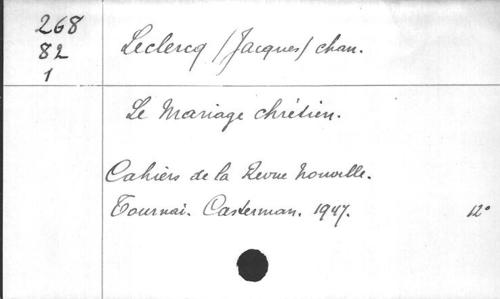 268
82
1
Leclercq (Jacques) chan.
Le Mariage chrétien.
Cahiers de la Revue Nouvelle.
Tournai. Casterman. 1947.
12°